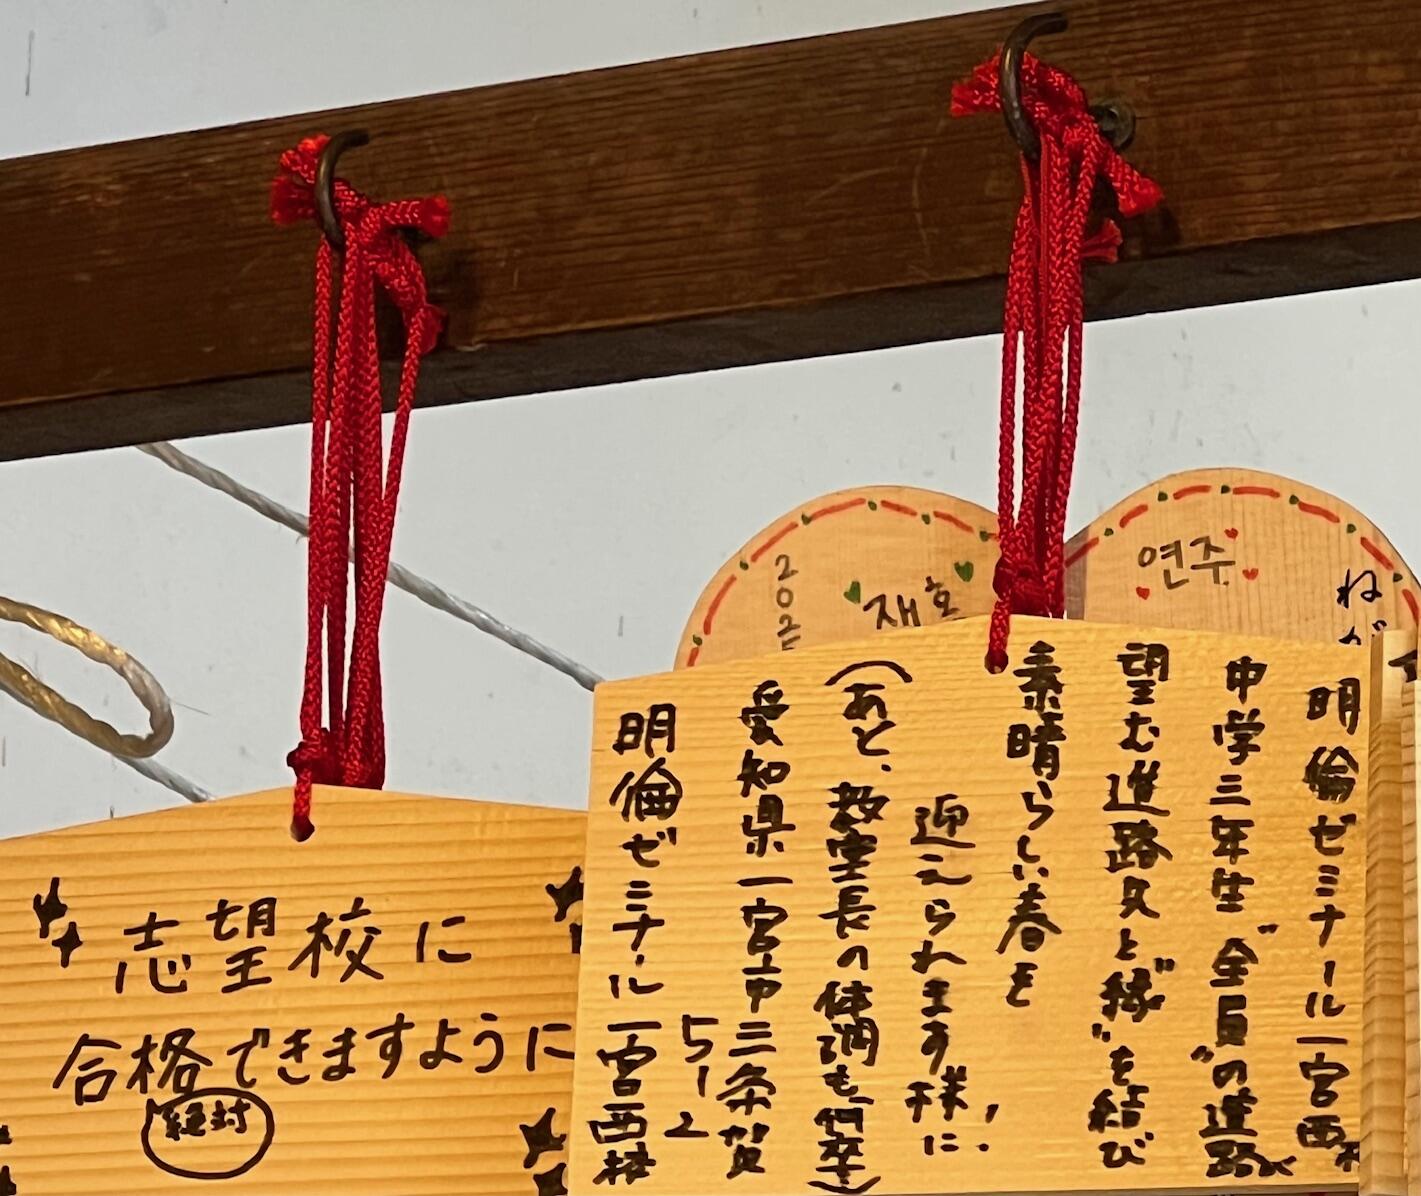 志望校に
合格できますように
絶対
明倫ゼミナール一宮西
中学三年生"全員"の進路が
望む進路先と"縁"を結び
素晴らしい春を
迎えられます様に!!
(あと、教室長の体調も何卒)
愛知県一宮市三条賀
51-2
明倫ゼミナール一宮西
재호
연주
ねが